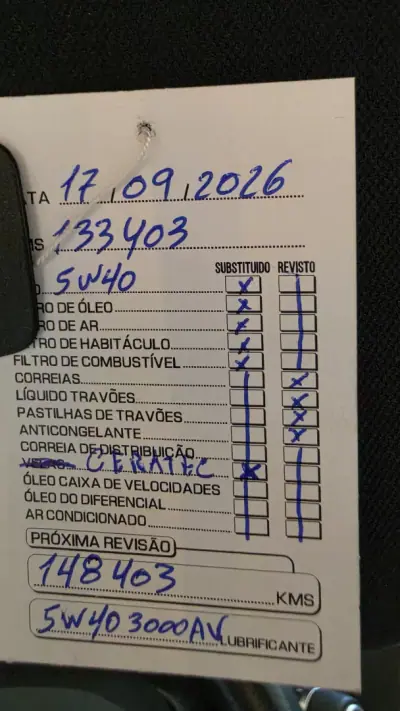 TA 17/09/2026
S 133403
SUBSTITUIDO REVISTO
O 5W40 X
RO DE ÓLEO X
RO DE AR X
TRO DE HABITÁCULO X
FILTRO DE COMBUSTÍVEL X
CORREIAS X
LÍQUIDO TRAVÕES X
PASTILHAS DE TRAVÕES X
ANTICONGELANTE X
CORREIA DE DISTRIBUIÇÃO
CERATEC X
ÓLEO CAIXA DE VELOCIDADES
ÓLEO DO DIFERENCIAL
AR CONDICIONADO
PRÓXIMA REVISÃO
148403 KMS
5W40 3000AV LUBRIFICANTE